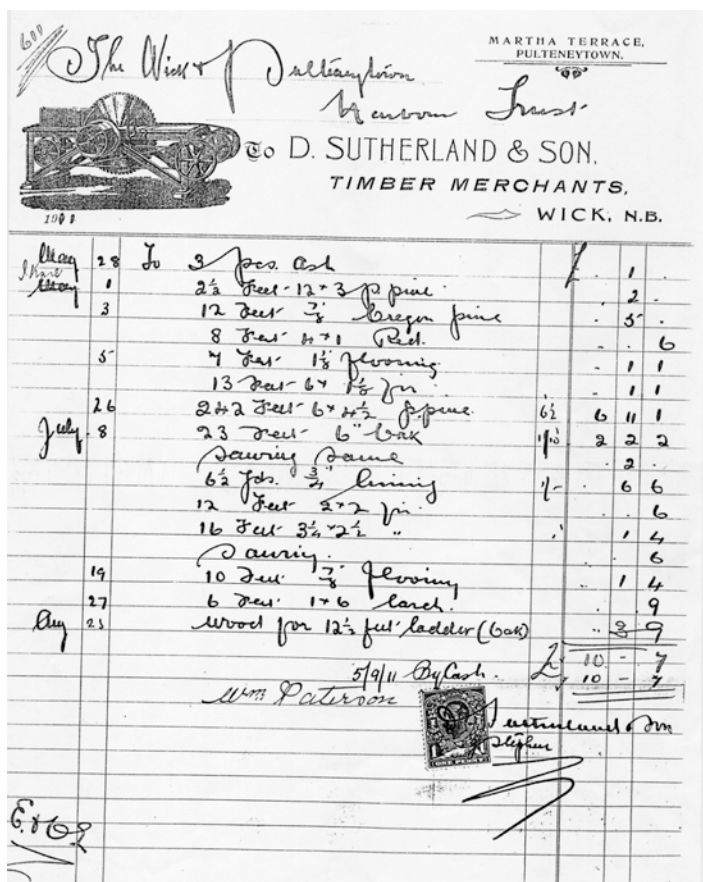 600
MARTHA TERRACE,
PULTENEYTOWN.
The Wick & Pulteneytown
Harbour Trust
To D. SUTHERLAND & SON,
TIMBER MERCHANTS,
WICK, N.B.
1911
May 28 To 3 pcs. Ash . 1 .
1 2½ Feet 12 × 3 P pine . 2 .
3 12 Feet ⅞ Oregon pine . 5 .
8 Feet 4 × 1 Red. 6
5 7 Feet 1⅛ flooring . 1 1
13 Feet 6 × 1⅛ fir . 1 1
26 242 Feet 6 × 4½ P. pine 6½ 6 11 1
July 8 23 Feet 6" Oak 1/10 2 2 2
Sawing Same . 2 .
6½ Yds. ¾" lining 1/- . 6 6
12 Feet 2 × 2 fir . 6
16 Feet 3¼ × 2½ " . 1 4
Sawing. . 6
19 10 Feet ⅞ flooring . 1 4
27 6 Feet 1 × 6 larch. . 9
Aug 23 Wood for 12½ feet ladder (Oak) . 3 9
£ 10 - 7
5/9/11 By Cash. 10 - 7
Wm Paterson
Sutherland & Son
ONE PENNY
E. & O. E